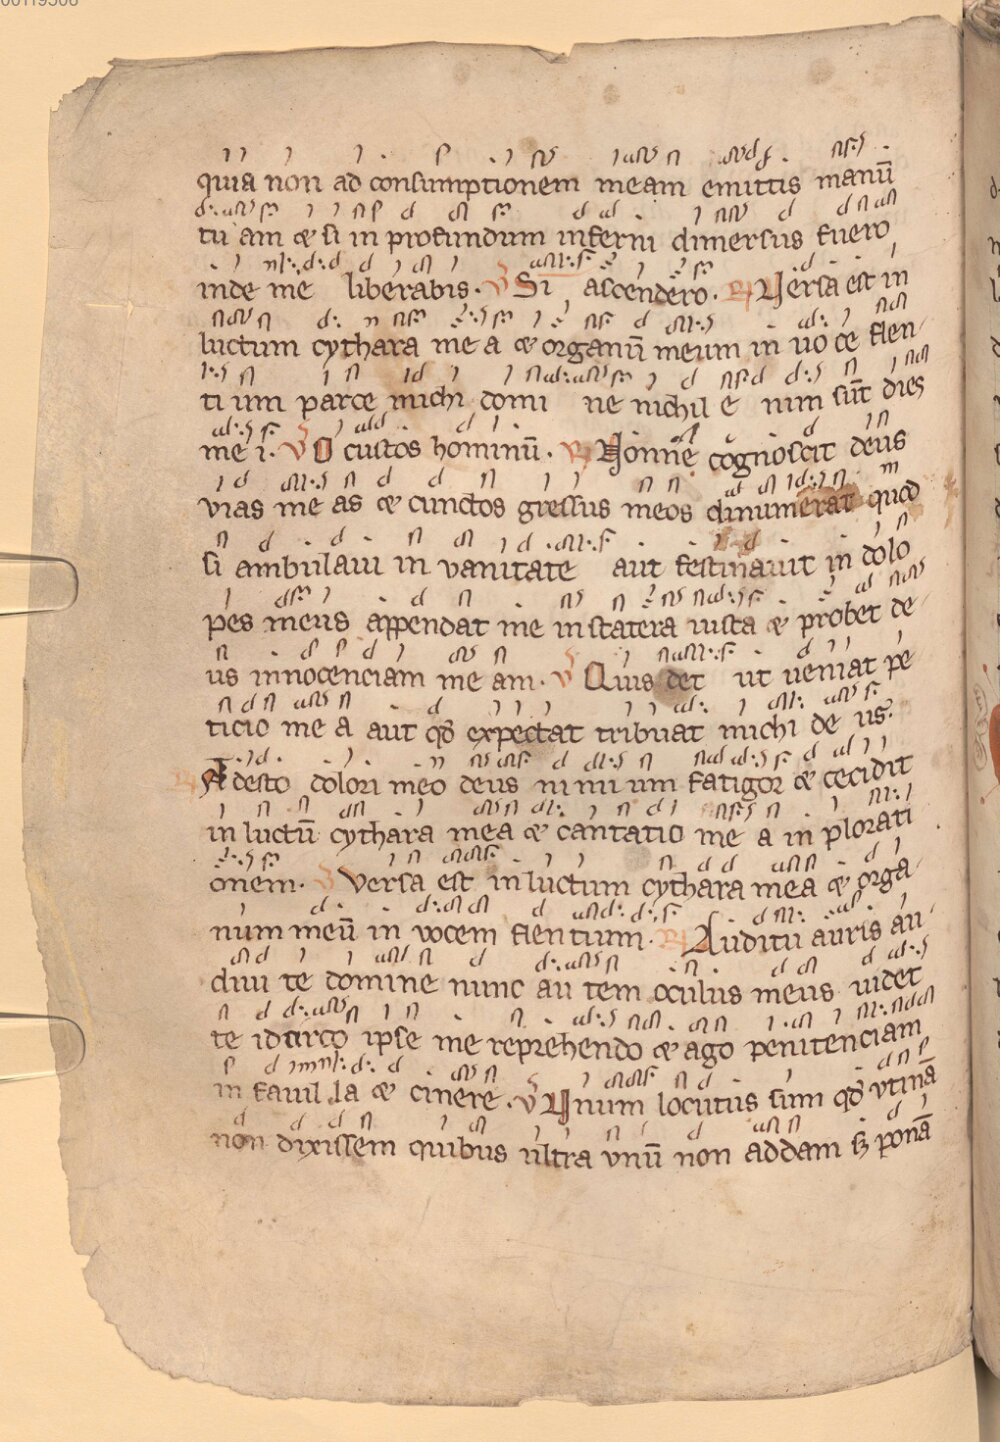 quia non ad consumptionem meam emittis manū
tu am & si in profundum inferni dimersus fuero
inde me liberabis. V Si ascendero. R Versa est in
luctum cythara me a & organū meum in uo ce flen
ti um parce michi domi ne nichil e nim sūt dies
me i. V O custos hominū. R Nonne cognoscit deus
vias me as & cunctos gressus meos dinumerat quod
si ambulaui in vanitate aut festinauit in dolo
pes meus appendat me in statera iusta & probet de
us innocenciam me am. V Quis det ut ueniat pe
ticio me a aut qđ expectat tribuat michi de us.
R Adesto dolori meo deus ni mi um fatigor & cecidit
in luctū cythara mea & cantatio me a in plorati
onem. V Versa est in luctum cythara mea & orga
num meū in vocem flentium. R Auditu auris au
diui te domine nunc au tem oculus meus uidet
te idcirco ipse me reprehendo & ago penitenciam
in fauil la & cinere. V Vnum locutus sum qđ vtinā
non dixissem quibus ultra vnū non addam sꝫ ponā